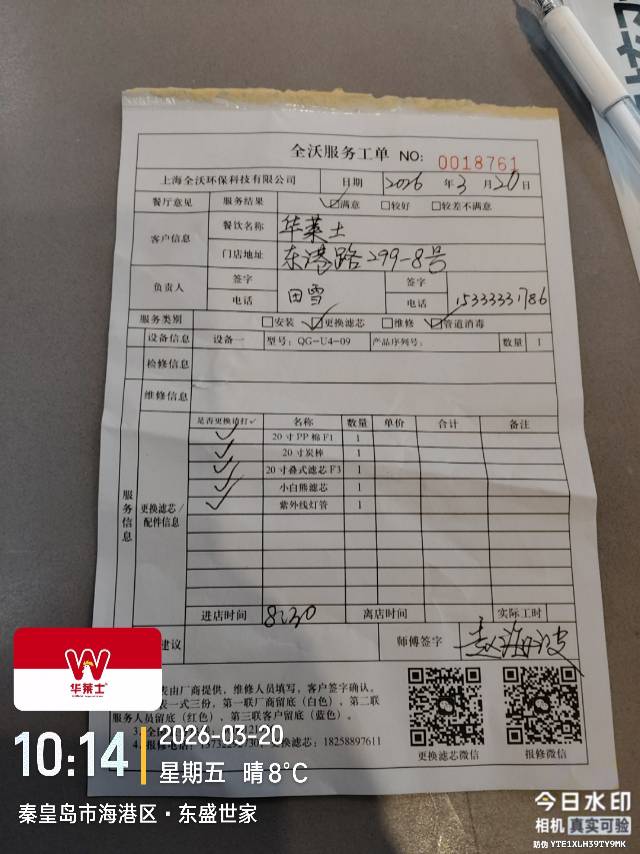 全沃服务工单 NO: 0018761
上海全沃环保科技有限公司 日期 2026 年 3 月 20 日
餐厅意见 服务结果 ☑满意 □较好 □较差不满意
客户信息 餐饮名称 华莱士
门店地址 东港路299-8号
负责人 签字 田雪 签字
电话 电话 15333331786
服务类别 □安装 ☑更换滤芯 □维修 ☑管道消毒
设备信息 设备一 型号: QG-U4-09 产品序列号: 数量 1
检修信息
维修信息
服务信息
更换滤芯/配件信息
是否更换请打✓ 名称 数量 单价 合计 备注
✓ 20寸PP棉F1 1
✓ 20寸炭棒 1
✓ 20寸叠式滤芯F3 1
✓ 小白熊滤芯 1
✓ 紫外线灯管 1
进店时间 8:30 离店时间 实际工时
建议 师傅签字
表由厂商提供，维修人员填写，客户签字确认。
表一式三份，第一联厂商留底（白色），第二联
服务人员留底（红色），第三联客户留底（蓝色）。
更换滤芯: 18258897611
更换滤芯微信 报修微信
华莱士
10:14 2026-03-20
星期五 晴 8℃
秦皇岛市海港区·东盛世家
今日水印
相机 真实可验
防伪 YTE1XLH39TY9MK